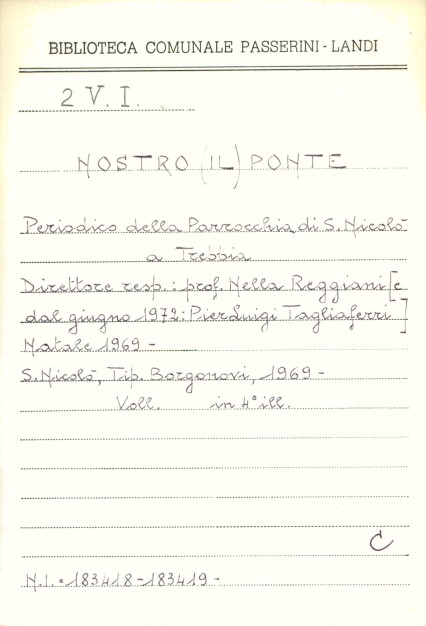 BIBLIOTECA COMUNALE PASSERINI - LANDI
2 V. I.
NOSTRO (IL) PONTE
Periodico della Parrocchia di S. Nicolò
a Trebbia
Direttore resp.: prof. Nella Reggiani [e
dal giugno 1972: PierLuigi Tagliaferri]
Natale 1969 -
S. Nicolò, Tip. Borgonovi, 1969 -
Voll. in 4° ill.
C
N.I. = 183418 - 183419 -